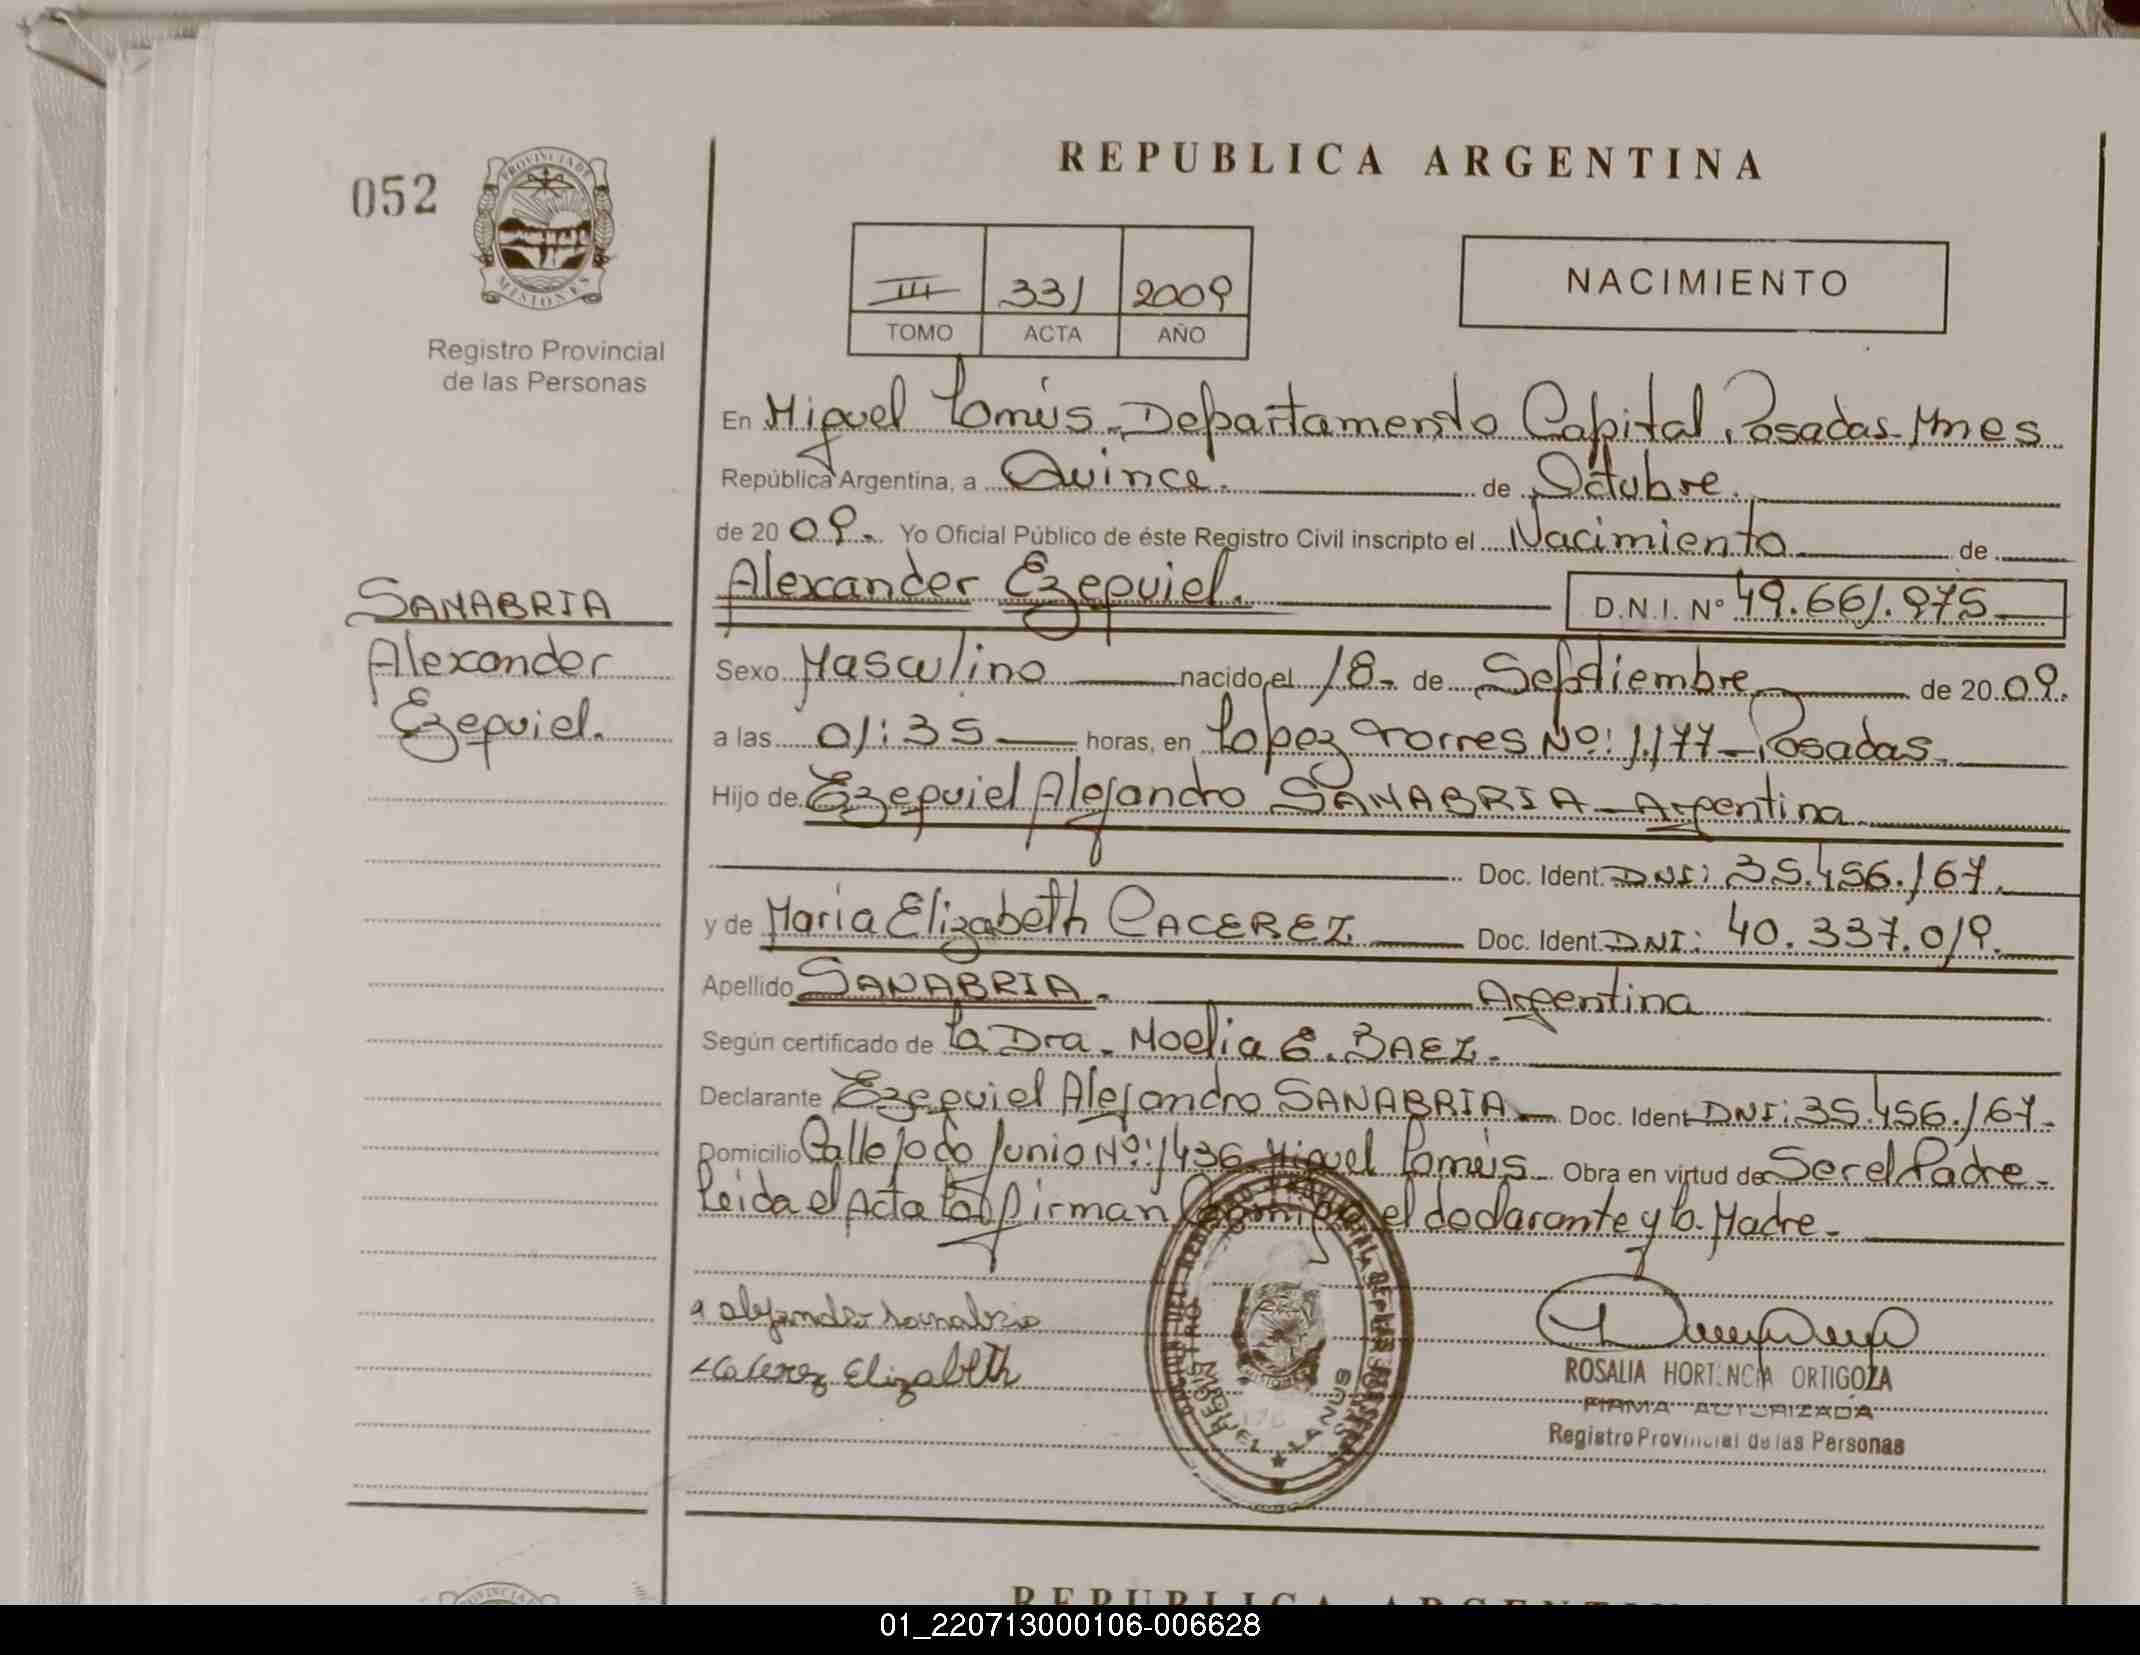 REPUBLICA ARGENTINA
052
PROVINCIA DE
MISIONES
Registro Provincial
de las Personas
III 331 2009
TOMO ACTA AÑO
NACIMIENTO
En Miguel Lanús. Departamento Capital, Posadas-Mnes
República Argentina, a Quince. de Octubre.
de 20 09. Yo Oficial Público de éste Registro Civil inscripto el Nacimiento de
Alexander Ezequiel. D.N.I. Nº 49.661.975
SANABRIA
Alexander
Ezequiel.
Sexo Masculino nacido el 18- de Septiembre de 20 09.
a las 01:35 horas, en Lopez Torres Nº: 1.177 - Posadas.
Hijo de Ezequiel Alejandro SANABRIA - Argentina
Doc. Ident. DNI: 35.456.167.
y de Maria Elizabeth CACEREZ Doc. Ident. DNI: 40.337.019.
Apellido SANABRIA. Argentina
Según certificado de La Dra. Noelia E. BAEZ.
Declarante Ezequiel Alejandro SANABRIA Doc. Ident DNI: 35.456.167-
Domicilio Calle 10 de Junio Nº: 1436 Miguel Lanús Obra en virtud de Ser el Padre.
Leida el Acta La firman Conmigo el declarante y la Madre.
alejandro sanabria
Cacerez Elizabeth
MIGUEL LANUS
ROSALIA HORTENCIA ORTIGOZA
FIRMA AUTORIZADA
Registro Provincial de las Personas
REPUBLICA ARGENTINA
01_220713000106-006628